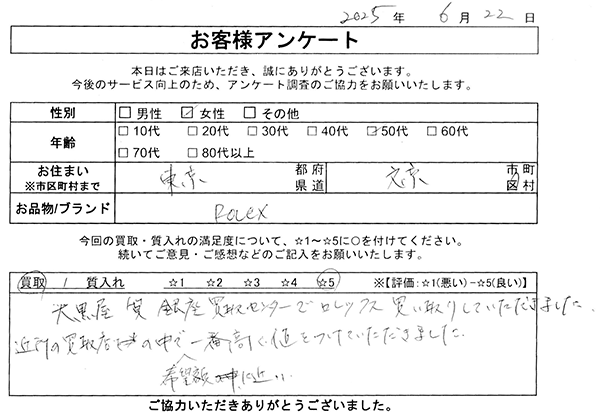 2025 年 6 月 22 日
お客様アンケート
本日はご来店いただき、誠にありがとうございます。
今後のサービス向上のため、アンケート調査のご協力をお願いいたします。
性別 □ 男性 ☑ 女性 □ その他
年齢 □ 10代 □ 20代 □ 30代 □ 40代 ☑ 50代 □ 60代
□ 70代 □ 80代以上
お住まい ※市区町村まで 東京 都府県道 文京 市町区村
お品物/ブランド ROLEX
今回の買取・質入れの満足度について、☆1~☆5に○を付けてください。
続いてご意見・ご感想などのご記入をお願いいたします。
買取 / 質入れ ☆1 ☆2 ☆3 ☆4 ☆5 ※【評価:☆1(悪い)-☆5(良い)】
大黒屋 質 銀座買取センターでロレックス買い取りしていただきました、
近所の買取店の中で一番高く値をつけていただきました。
希望額に近い
ご協力いただきありがとうございました。